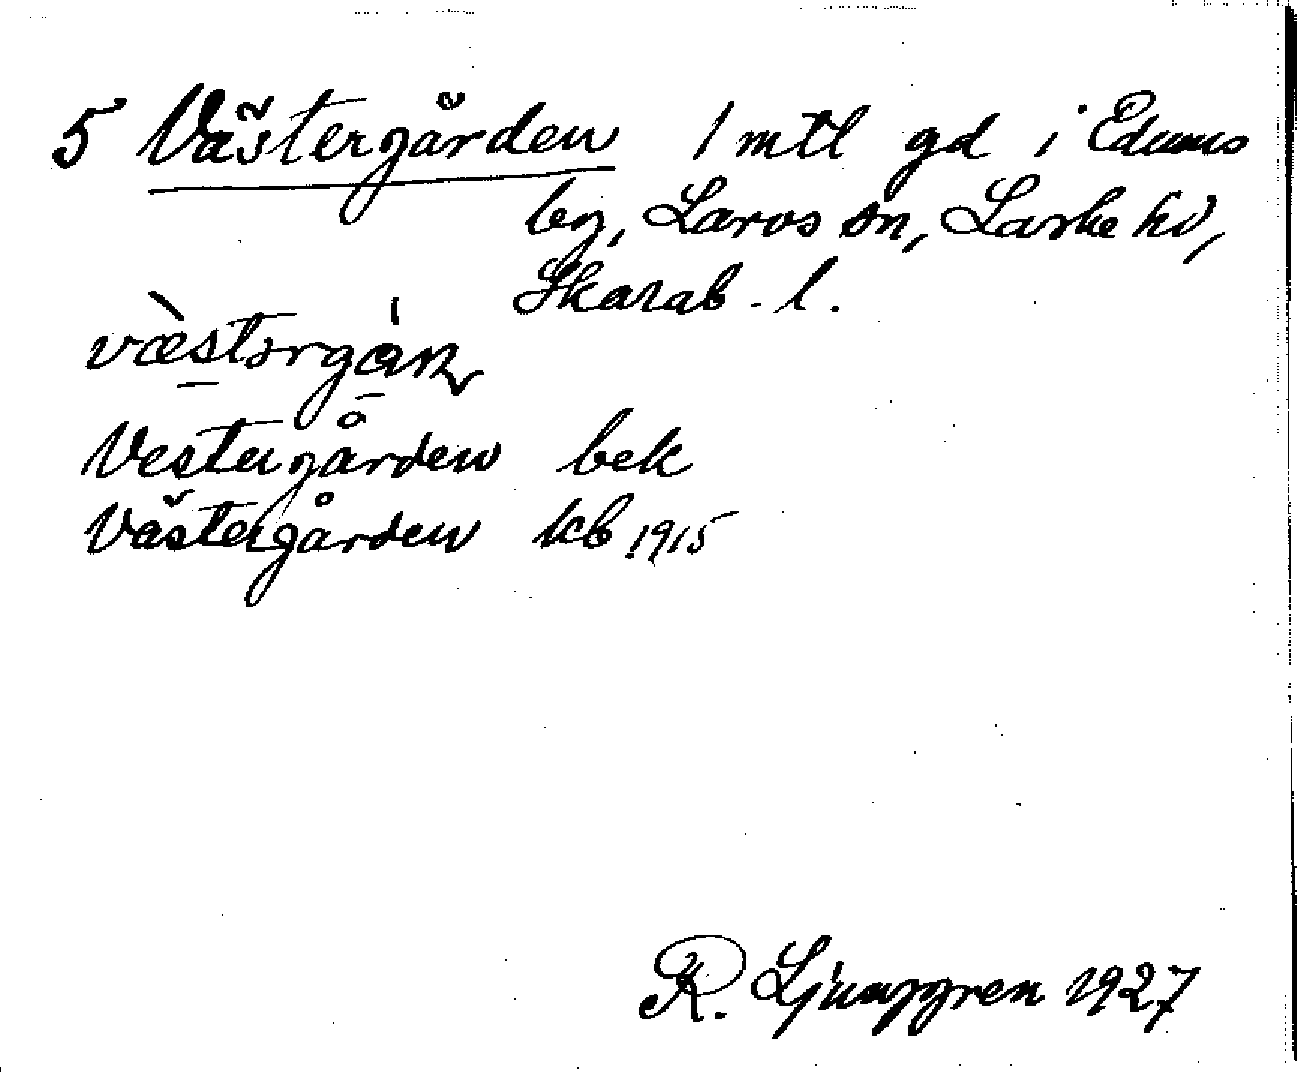 5 Västergården 1 mtl gd i Edums
by, Laros sn, Laske hd,
Skarab. l.
væstərgán
Vestergården bek
Västergården kb 1915
R. Ljunggren 1927